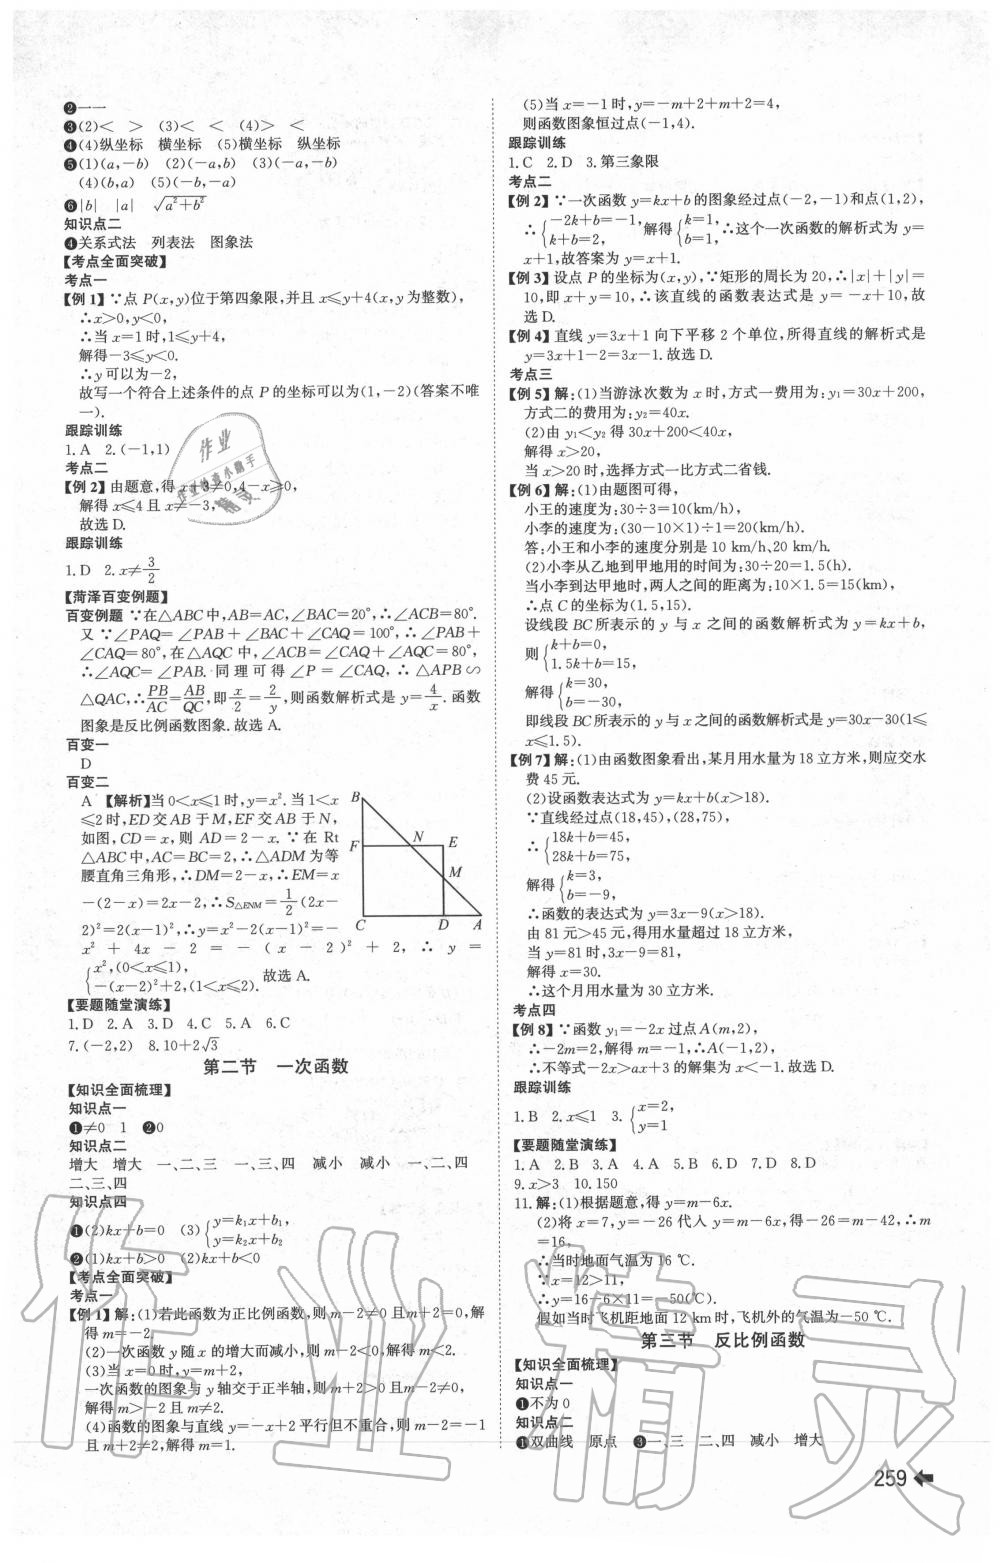 ❷一一
❸(2)< > (3)< < (4)> <
❹(4)纵坐标 横坐标 (5)横坐标 纵坐标
❺(1)(a,-b) (2)(-a,b) (3)(-a,-b)
(4)(b,a) (5)(-b,-a)
❻|b| |a| √(a²+b²)
知识点二
❹关系式法 列表法 图象法
【考点全面突破】
考点一
【例1】∵点P(x,y)位于第四象限,并且x≤y+4(x,y为整数),
∴x>0,y<0,
∴当x=1时,1≤y+4,
解得-3≤y<0.
∴y可以为-2,
故写一个符合上述条件的点P的坐标可以为(1,-2)(答案不唯
一).
跟踪训练
1.A 2.(-1,1)
考点二
【例2】由题意,得x+3≠0,4-x≥0,
解得x≤4且x≠-3,
故选D.
跟踪训练
1.D 2.x≠3/2
【菏泽百变例题】
百变例题 ∵在△ABC中,AB=AC,∠BAC=20°,∴∠ACB=80°.
又∵∠PAQ=∠PAB+∠BAC+∠CAQ=100°,∴∠PAB+
∠CAQ=80°,在△AQC中,∠ACB=∠CAQ+∠AQC=80°,
∴∠AQC=∠PAB.同理可得∠P=∠CAQ,∴△APB∽
△QAC,∴PB/AC=AB/QC,即x/2=2/y,则函数解析式是y=4/x.函数
图象是反比例函数图象.故选A.
百变一
D
百变二
A 【解析】当0<x≤1时,y=x².当1<x
≤2时,ED交AB于M,EF交AB于N,
如图,CD=x,则AD=2-x.∵在Rt
△ABC中,AC=BC=2,∴△ADM为等
腰直角三角形,∴DM=2-x,∴EM=x
-(2-x)=2x-2,∴S△ENM=1/2(2x-
2)²=2(x-1)²,∴y=x²-2(x-1)²=-
x²+4x-2=-(x-2)²+2,∴y=
{x²,(0<x≤1),
-(x-2)²+2,(1<x≤2). 故选A.
B
F N E
M
C D A
【要题随堂演练】
1.D 2.A 3.D 4.C 5.A 6.C
7.(-2,2) 8.10+2√3
第二节 一次函数
【知识全面梳理】
知识点一
❶≠0 1 ❷0
知识点二
增大 增大 一、二、三 一、三、四 减小 减小 一、二、四
二、三、四
知识点四
❶(2)kx+b=0 (3){y=k₁x+b₁,
y=k₂x+b₂
❷(1)kx+b>0 (2)kx+b<0
【考点全面突破】
考点一
【例1】解:(1)若此函数为正比例函数,则m-2≠0且m+2=0,解
得m=-2.
(2)一次函数y随x的增大而减小,则m-2<0,解得m<2.
(3)当x=0时,y=m+2,
一次函数的图象与y轴交于正半轴,则m+2>0且m-2≠0,
解得m>-2且m≠2.
(4)函数的图象与直线y=-x+2平行但不重合,则m-2=-1
且m+2≠2,解得m=1.
(5)当x=-1时,y=-m+2+m+2=4,
则函数图象恒过点(-1,4).
跟踪训练
1.C 2.D 3.第三象限
考点二
【例2】∵一次函数y=kx+b的图象经过点(-2,-1)和点(1,2),
∴{-2k+b=-1,
k+b=2, 解得{k=1,
b=1, ∴这个一次函数的解析式为y=
x+1,故答案为y=x+1.
【例3】设点P的坐标为(x,y),∵矩形的周长为20,∴|x|+|y|=
10,即x+y=10,∴该直线的函数表达式是y=-x+10,故
选D.
【例4】直线y=3x+1向下平移2个单位,所得直线的解析式是
y=3x+1-2=3x-1.故选D.
考点三
【例5】解:(1)当游泳次数为x时,方式一费用为:y₁=30x+200,
方式二的费用为:y₂=40x.
(2)由y₁<y₂得30x+200<40x,
解得x>20,
当x>20时,选择方式一比方式二省钱.
【例6】解:(1)由题图可得,
小王的速度为:30÷3=10(km/h),
小李的速度为:(30-10×1)÷1=20(km/h).
答:小王和小李的速度分别是10 km/h、20 km/h.
(2)小李从乙地到甲地用的时间为:30÷20=1.5(h).
当小李到达甲地时,两人之间的距离为:10×1.5=15(km),
∴点C的坐标为(1.5,15).
设线段BC所表示的y与x之间的函数解析式为y=kx+b,
则{k+b=0,
1.5k+b=15,
解得{k=30,
b=-30,
即线段BC所表示的y与x之间的函数解析式是y=30x-30(1≤
x≤1.5).
【例7】解:(1)由函数图象看出,某月用水量为18立方米,则应交水
费45元.
(2)设函数表达式为y=kx+b(x>18).
∵直线经过点(18,45),(28,75),
∴{18k+b=45,
28k+b=75,
解得{k=3,
b=-9,
∴函数的表达式为y=3x-9(x>18).
由81元>45元,得用水量超过18立方米,
当y=81时,3x-9=81,
解得x=30.
∴这个月用水量为30立方米.
考点四
【例8】∵函数y₁=-2x过点A(m,2),
∴-2m=2,解得m=-1,∴A(-1,2),
∴不等式-2x>ax+3的解集为x<-1.故选D.
跟踪训练
1.B 2.x≤1 3.{x=2,
y=1
【要题随堂演练】
1.A 2.B 3.A 4.A 5.B 6.D 7.D 8.D
9.x>3 10.150
11.解:(1)根据题意,得y=m-6x.
(2)将x=7,y=-26代入y=m-6x,得-26=m-42,∴m
=16,
∴当时地面气温为16 ℃.
∵x=12>11,
∴y=16-6×11=-50(℃).
假如当时飞机距地面12 km时,飞机外的气温为-50 ℃.
第三节 反比例函数
【知识全面梳理】
知识点一
❶不为0
知识点二
❶双曲线 原点 ❸一、三 二、四 减小 增大
259
作业精灵